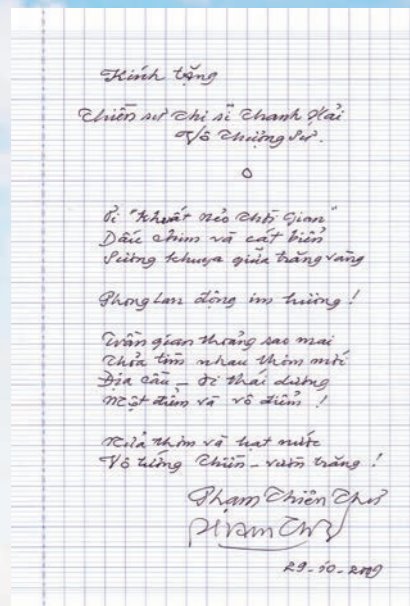 Kính tặng
Thiền sư Thi sĩ Thanh Hải
Vô Thượng Sư.
Đi "khuất nẻo thời gian"
Dấu chim và cát biển
Sương khuya giữa trăng vàng
Phong Lan động im hương!
Trần gian thoảng sao mai
Thỏa tìm nhau thơm mới
Địa cầu - đi thái dương
Một điểm và vô điểm!
Nửa thơm và hạt nước
Vô tướng Thiền - vườn trăng!
Phạm Thiên Thư
29-10-2009